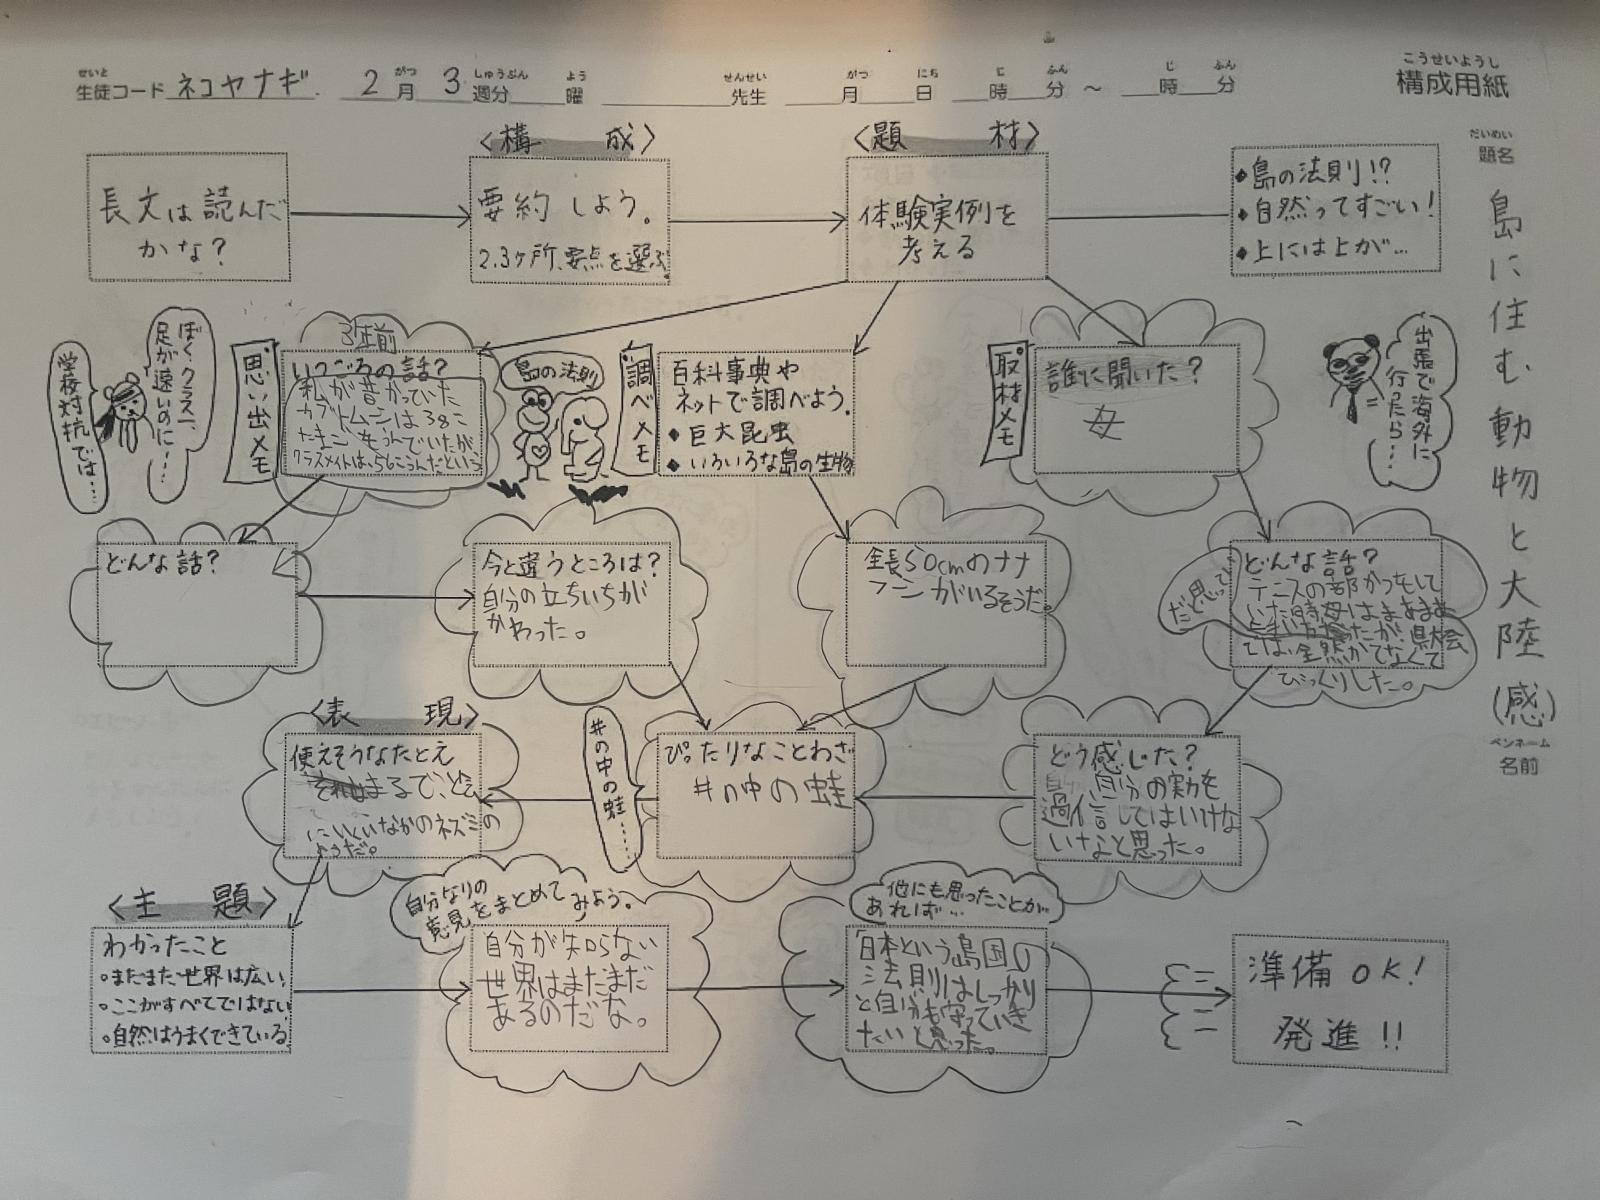 せいと がつ しゅうぶん よう せんせい がつ にち じ ふん じ ふん
生徒コード ネコヤナギ 2月 3週分 曜 先生 月 日 時 分 ～ 時 分
こうせいようし
構成用紙
だいめい
題名
島に住む動物と大陸(感)
ペンネーム
名前
長文は読んだ
かな?
〈構 成〉
要約しよう。
2.3ヶ所、要点を選ぶ
〈題 材〉
体験実例を
考える
◆島の法則!?
◆自然ってすごい!
◆上には上が…
学校対抗では…
ぼく、クラス一、
足が速いのに……
思い出メモ
3年前
いつごろの話?
私が昔かっていた
カブトムシは38こ
たまごをうんでいたが
クラスメイトは、56こうんだという
島の法則
調べメモ
百科事典や
ネットで調べよう。
◆巨大昆虫
◆いろいろな島の生物
取材メモ
誰に聞いた?
母
出張で海外に
行ったら…
どんな話?
今と違うところは?
自分の立ちいちが
かわった。
全長50cmのナナ
フシがいるそうだ。
どんな話?
テニスの部かつをして
いた時母はまあまあ
だと思って
いたが、県大会
では、全然かてなくて
びっくりした。
〈表 現〉
使えそうなたとえ
まるで、と会
にいくいなかのネズミの
ようだ。
井の中の蛙……
ぴったりなことわざ
井の中の蛙
どう感じた?
自分の実力を
過信してはいけな
いなと思った。
〈主 題〉
わかったこと
○まだまだ世界は広い
○ここがすべてではない
○自然はうまくできている
自分なりの
意見をまとめてみよう。
自分が知らない
世界はまだまだ
あるのだな。
他にも思ったことが
あれば…
日本という島国の
法則はしっかり
と自分も守っていき
たいと思った。
準備OK!
発進!!